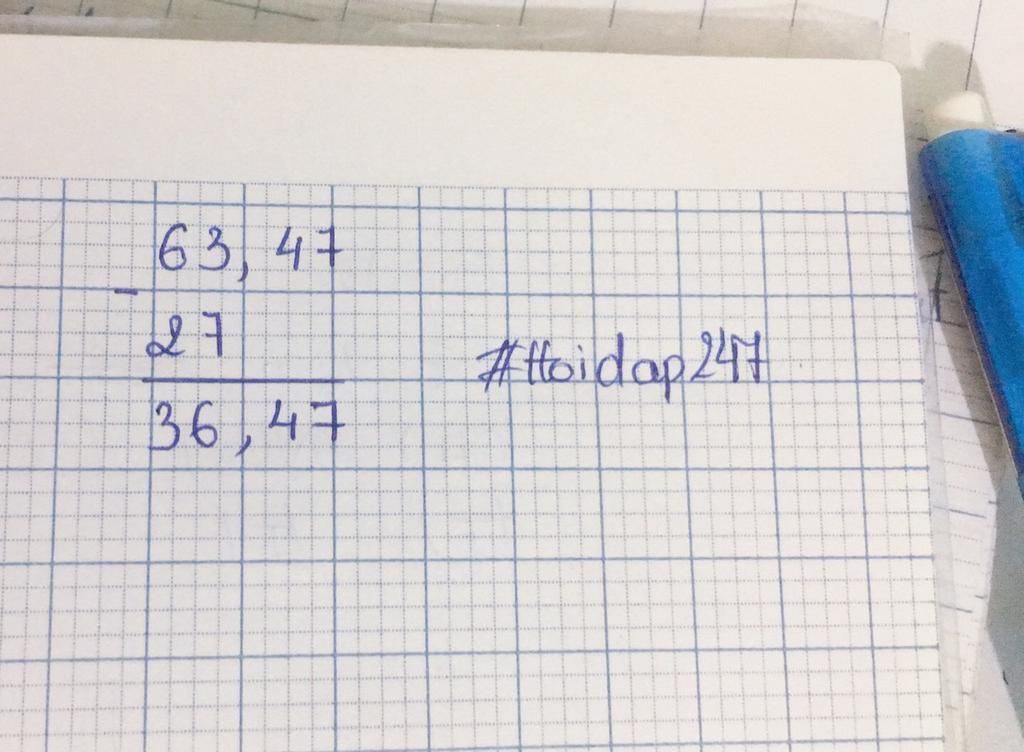 63,47
-
27
36,47
#ttoidap247